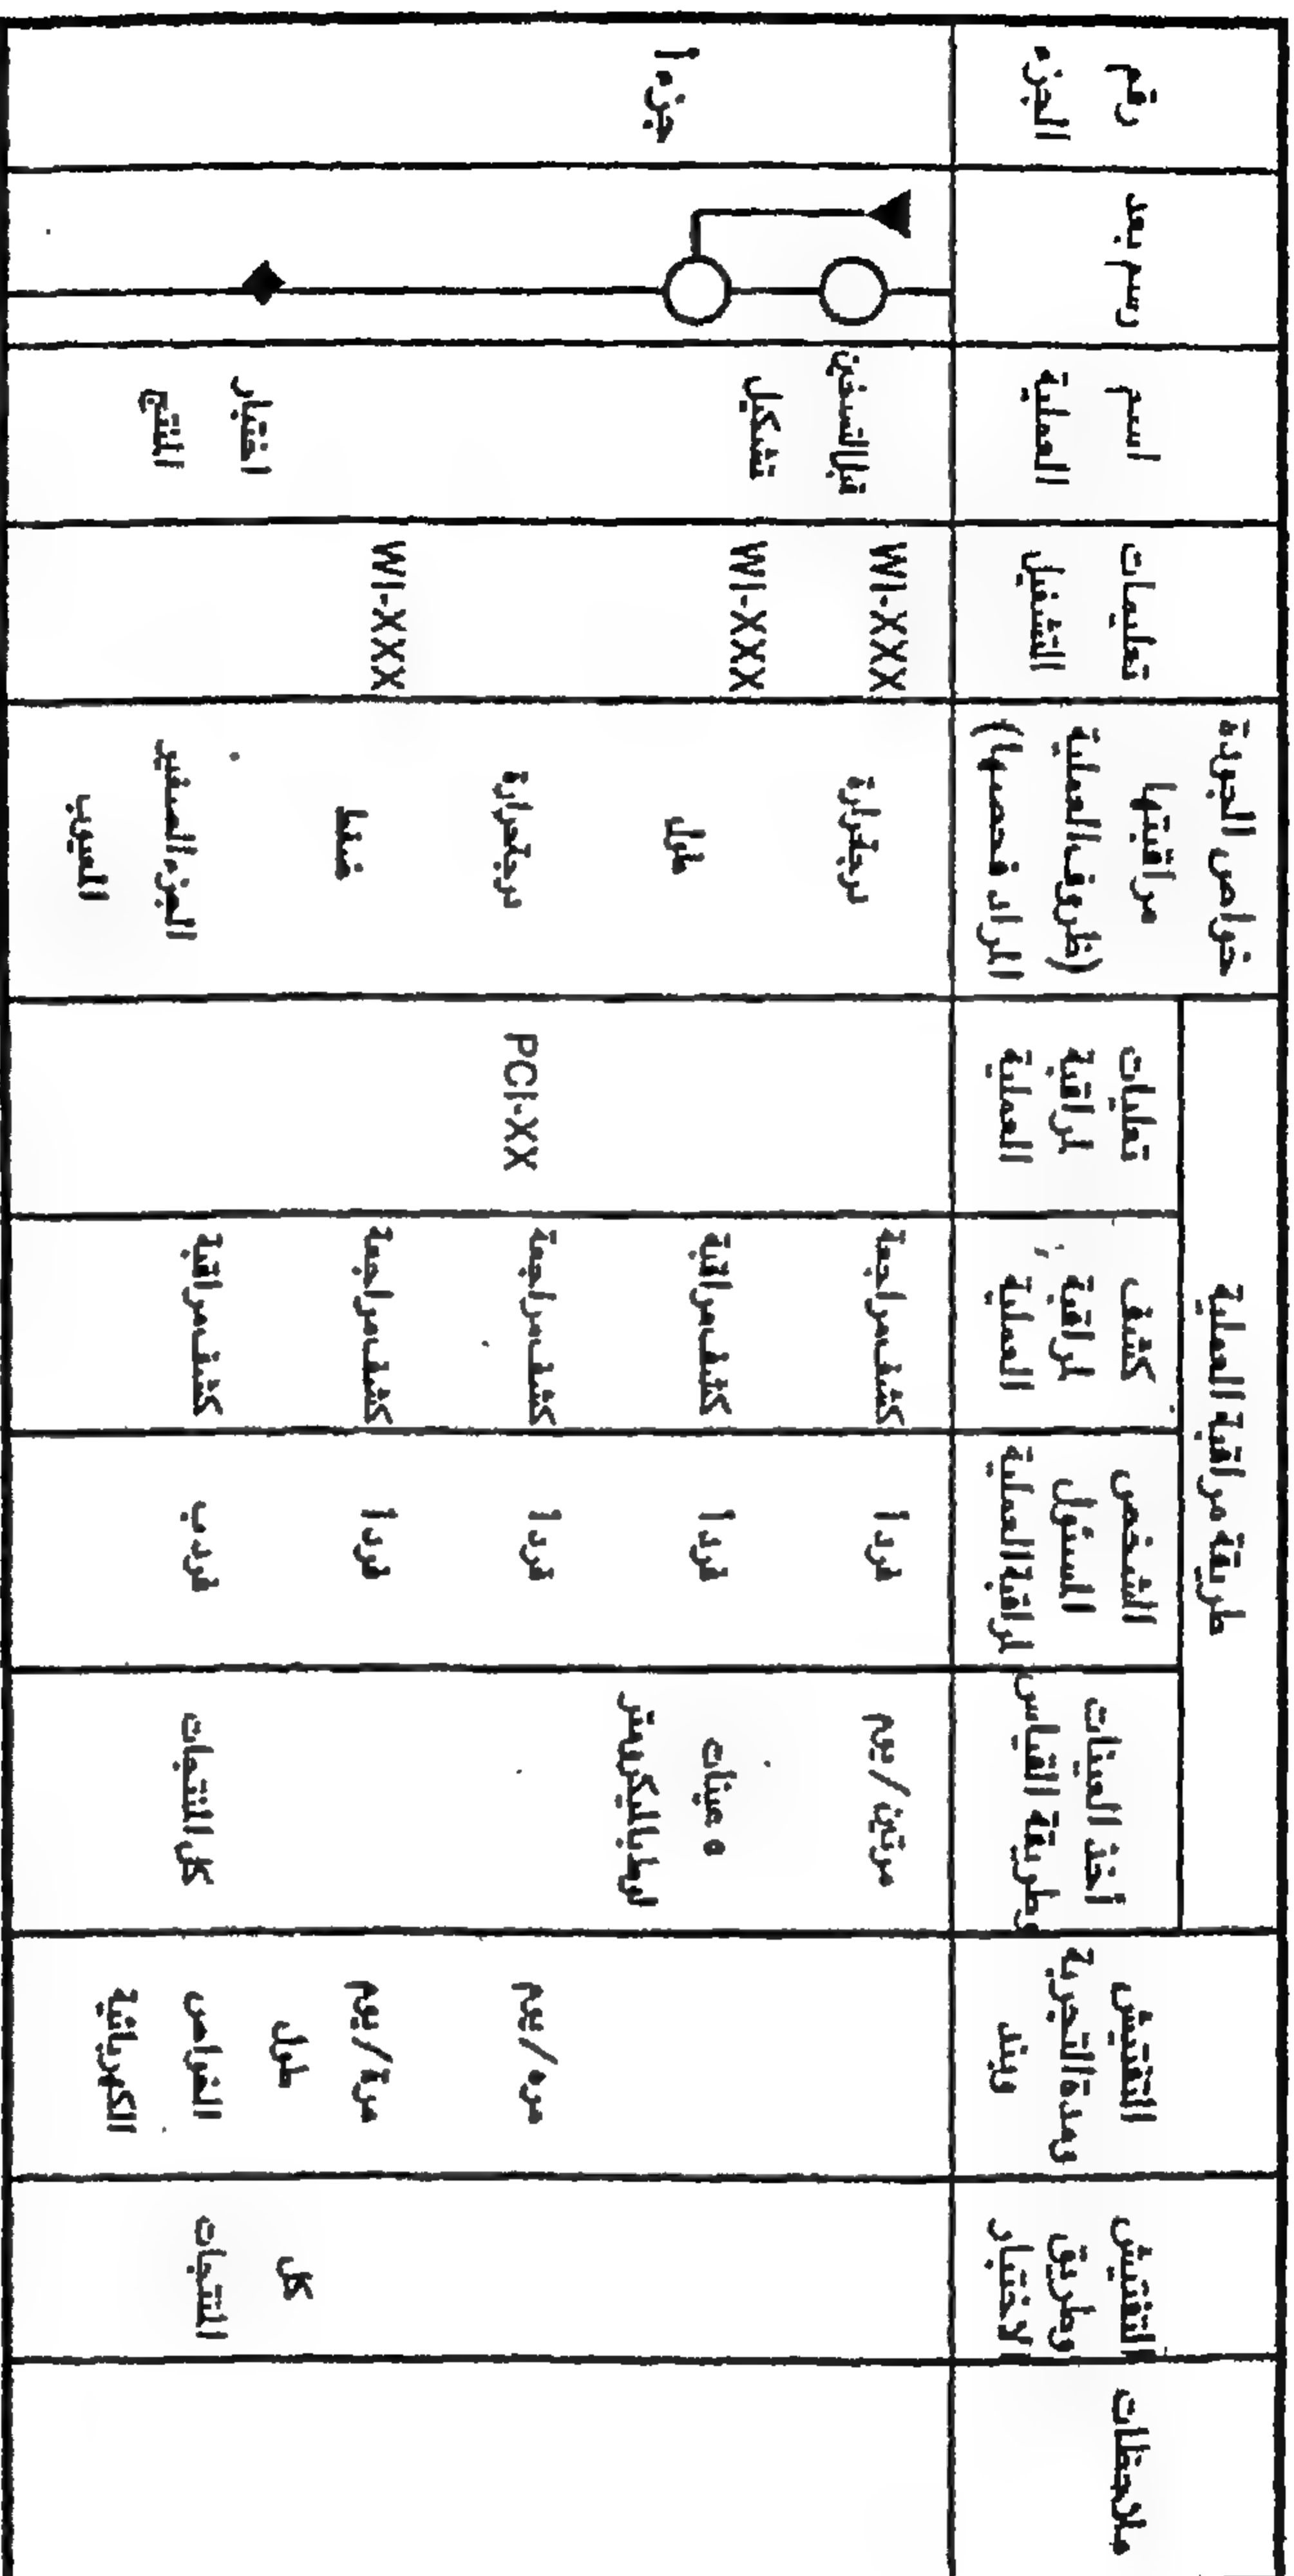 رقم
الجزء
رسم بعد
اسم
العملية
تعليمات
التشغيل
خواص الجودة
مراقبتها
(ظروف العملية
المراد فحصها)
طريقة مراقبة العملية
تعليمات
لمراقبة
العملية
كشف
لمراقبة
العملية
الشخص
المسئول
لمراقبة العملية
أخذ العينات
وطريقة القياس
التفتيش
ومدة التجربة
وبند
التفتيش
وطريق
لاختبار
ملاحظات
جزء أ
قبل التسخين
WI-XXX
كشف مراجعة
فرد أ
مرتين / يوم
تشكيل
WI-XXX
طول
كشف مراقبة
فرد أ
٥ عينات
PCI-XX
كشف مراجعة
فرد أ
مره / يوم
WI-XXX
كشف مراجعة
فرد أ
مرة / يوم
اختبار
المنتج
الجزء الصغير
العيوب
كشف مراقبة
فرد ب
كل المنتجات
طول
الخواص
الكهربائية
كل
المنتجات